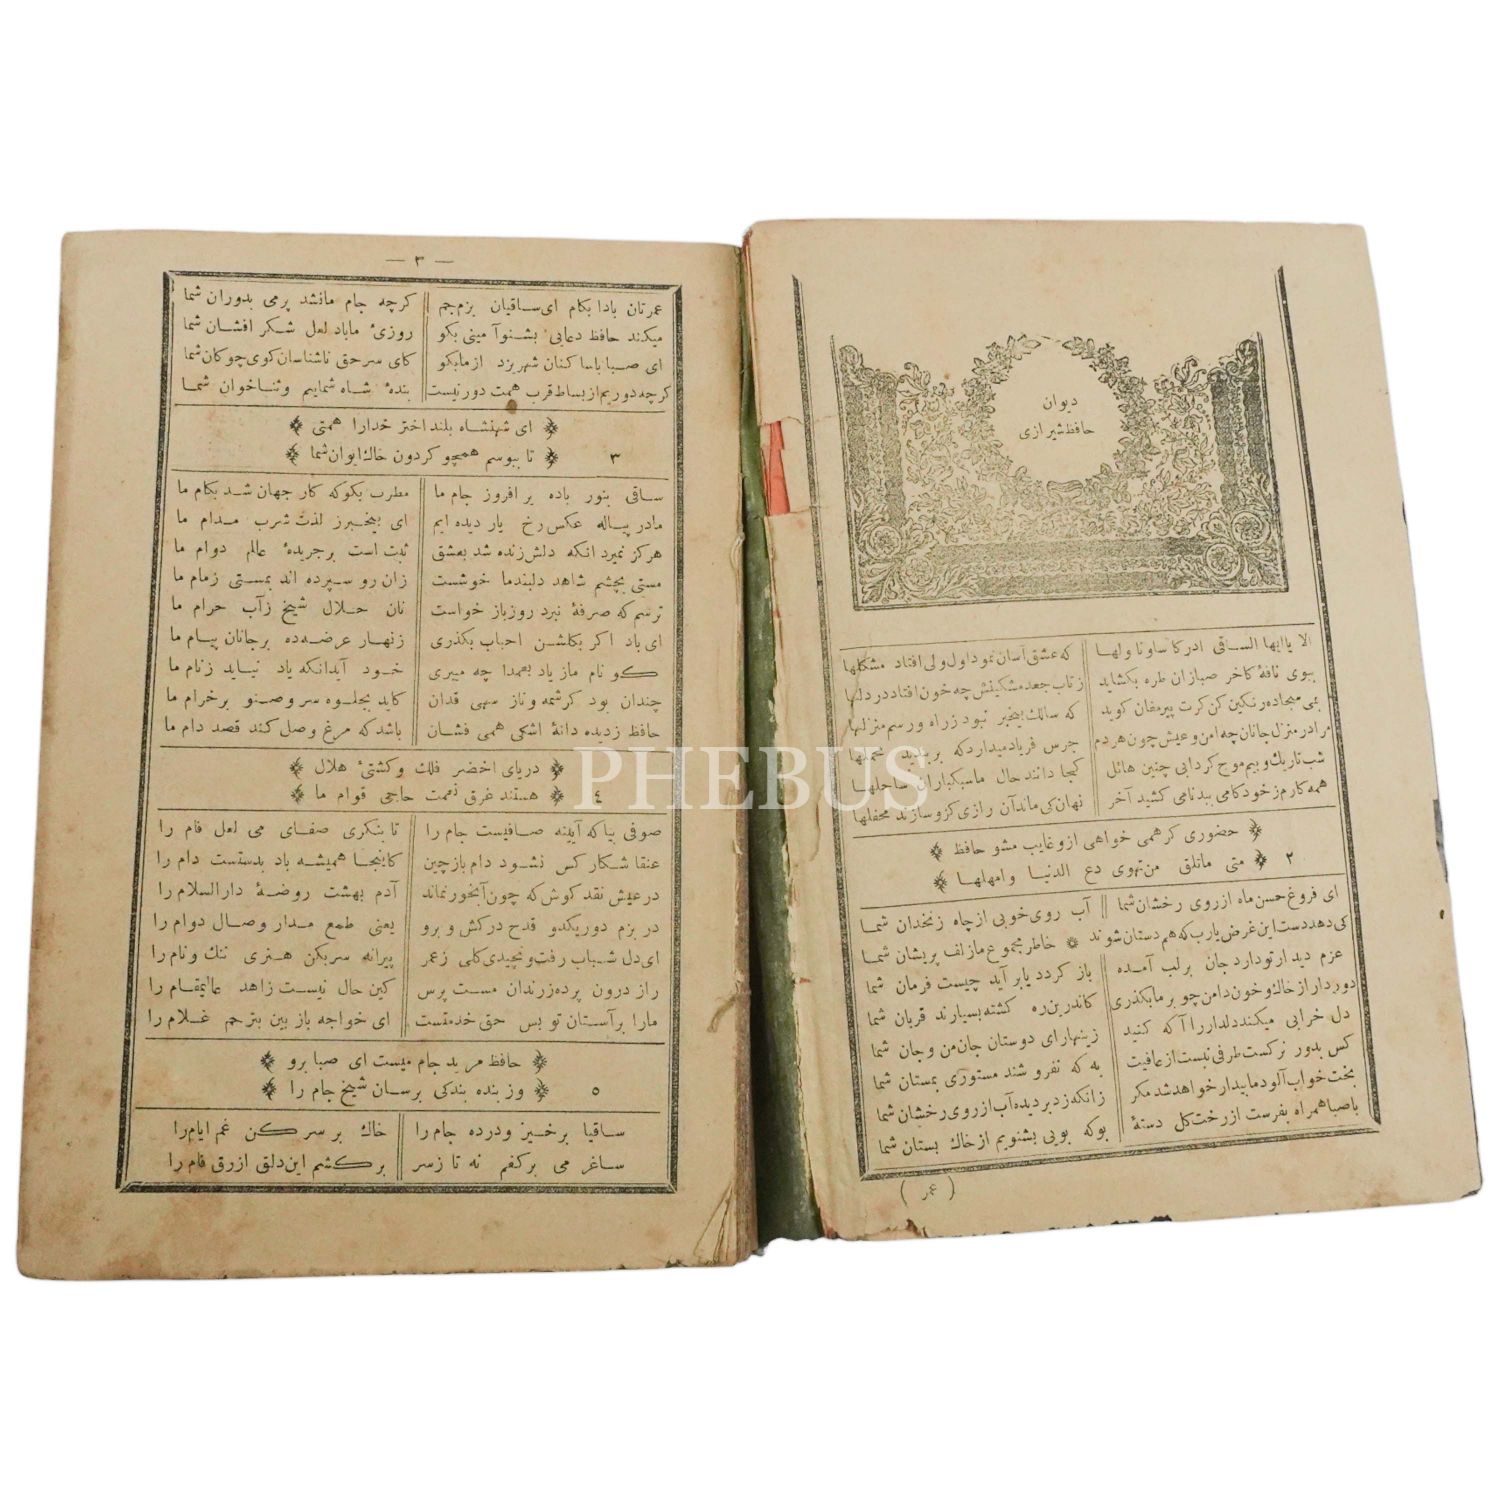 دیوان
حافظ شیرازی
الا یا ایها الساقی ادر کاسا و ناولها که عشق آسان نمود اول ولی افتاد مشکلها
ببوی نافهٔ کاخر صبا زان طره بکشاید ز تاب جعد مشکینش چه خون افتاد در دلها
بمی سجاده رنکین کن کرت پیر مغان کوید که سالك بیخبر نبود ز راه و رسم منزلها
مرا در منزل جانان چه امن و عیش چون هر دم جرس فریاد میدارد که بر بندید محملها
شب تاریك و بیم موج کردابی چنین هائل کجا دانند حال ما سبکباران ساحلها
همه کارم ز خود کامی ببد نامی کشید آخر نهان کی ماند آن رازی کزو سازند محفلها
حضوری کر همی خواهی ازو غایب مشو حافظ
متی ما تلق من تهوی دع الدنیا و امهلها ٢
ای فروغ حسن ماه از روی رخشان شما آب روی خوبی از چاه زنخدان شما
کی دهد دست این غرض یارب که هم دستان شوند خاطر مجموع ما زلف پریشان شما
عزم دیدار تو دارد جان بر لب آمده باز کردد یا بر آید چیست فرمان شما
دور دار از خاك و خون دامن چو بر ما بکذری کاندرین ره کشته بسیارند قربان شما
دل خرابی میکند دلدار را آکه کنید زینهار ای دوستان جان من و جان شما
کس بدور نرکست طرفی نبست از عافیت به که نفروشند مستوری بمستان شما
بخت خواب آلود ما بیدار خواهد شد مکر زانکه زد بر دیده آب از روی رخشان شما
با صبا همراه بفرست از رخت کل دستهٔ بوکه بویی بشنویم از خاك بستان شما
( عمر )
— ٣ —
عمر تان بادا بکام ای ساقیان بزم جم کرچه جام ما نشد پر می بدوران شما
میکند حافظ دعایی بشنو آمینی بکو روزیٔ ما باد لعل شکر افشان شما
ای صبا با ساکنان شهر یزد از ما بکو کای سر حق ناشناسان کوی چوکان شما
کرچه دوریم از بساط قرب همت دور نیست بندهٔ شاه شماییم و ثنا خوان شما
ای شهنشاه بلند اختر خدارا همتی
تا ببوسم همچو کردون خاك ایوان شما ٣
ساقی بنور باده بر افروز جام ما مطرب بکو که کار جهان شد بکام ما
ما در پیاله عکس رخ یار دیده ایم ای بیخبر ز لذت شرب مدام ما
هرکز نمیرد انکه دلش زنده شد بعشق ثبت است بر جریدهٔ عالم دوام ما
مستی بچشم شاهد دلبند ما خوشست زان رو سپرده اند بمستی زمام ما
ترسم که صرفهٔ نبرد روز باز خواست نان حلال شیخ ز آب حرام ما
ای باد اکر بکلشن احباب بکذری زنهار عرضه ده بر جانان پیام ما
کو نام ما ز یاد بعمدا چه میبری خود آید انکه یاد نیاید ز نام ما
چندان بود کرشمه و ناز سهی قدان کاید بجلوه سرو صنوبر خرام ما
حافظ ز دیده دانهٔ اشکی همی فشان باشد که مرغ وصل کند قصد دام ما
دریای اخضر فلك و کشتیٔ هلال
هستند غرق نعمت حاجی قوام ما ٤
صوفی بیا که آیینه صافیست جام را تا بنکری صفای می لعل فام را
عنقا شکار کس نشود دام باز چین کاینجا همیشه باد بدستست دام را
در عیش نقد کوش که چون آبخور نماند آدم بهشت روضهٔ دار السلام را
در بزم دور یکدو قدح درکش و برو یعنی طمع مدار وصال دوام را
ای دل شباب رفت و نچیدی کلی ز عمر پیرانه سر بکن هنری ننك و نام را
راز درون پرده ز رندان مست پرس کین حال نیست زاهد عالیمقام را
ما را بر آستان تو بس حق خدمتست ای خواجه باز بین بترحم غلام را
حافظ مرید جام میست ای صبا برو
وز بنده بندکی برسان شیخ جام را ٥
ساقیا برخیز و درده جام را خاك بر سر کن غم ایام را
ساغر می بر کفم نه تا ز سر بر کشم این دلق ازرق فام را
PHEBUS